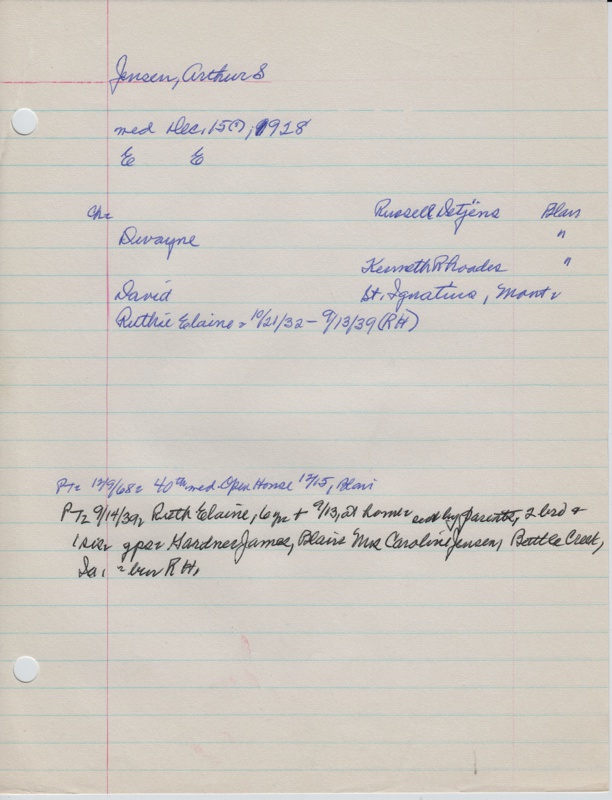 Jensen, Arthur S
med Dec. 15(?), 1928
E E
Ch= Russell Detjens Blair
Dwayne "
Kenneth Rhoades "
David St. Ignatius, Mont.
Ruthie Elaine = 10/21/32 - 9/13/39 (RH)
PT= 12/9/68= 40th wed. Open House 12/15, Blair
PT= 9/14/39, Ruth Elaine, 6 yr + 9/13, at home surd by parents, 2 bro &
1 sis= gps= Gardner James, Blair= Mrs Caroline Jensen, Battle Creek,
Ia. = bur RH.